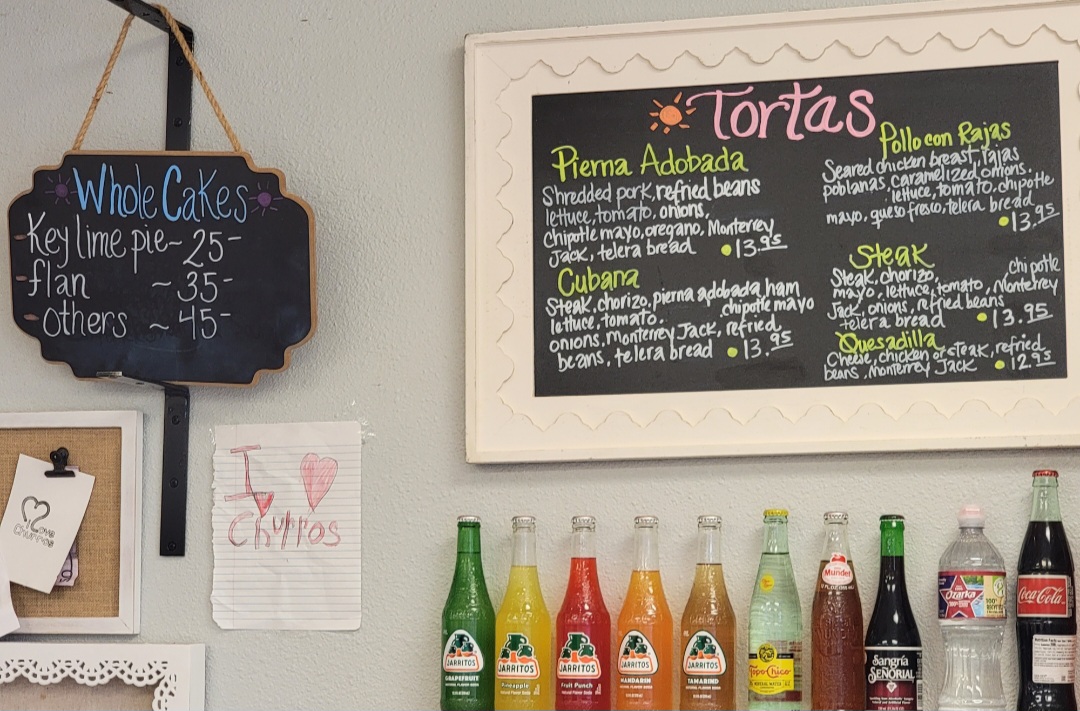 Whole Cakes
Key lime pie ~ 25-
flan ~ 35-
others ~ 45-
I
Churros
I Love
Churros
Tortas
Pierna Adobada
Shredded pork, refried beans
lettuce, tomato, onions,
Chipotle mayo, oregano, Monterrey
Jack, telera bread • 13.95
Cubana
Steak, chorizo, pierna adobada, ham
lettuce, tomato, chipotle mayo
onions, Monterrey Jack, refried
beans, telera bread • 13.95
Pollo con Rajas
Seared chicken breast, rajas
poblanas, caramelized onions.
lettuce, tomato, chipotle
mayo, queso fresco, telera bread
• 13.95
Steak
Steak, chorizo, chipotle
mayo, lettuce, tomato, Monterrey
Jack, onions, refried beans
telera bread • 13.95
Quesadilla
Cheese, chicken or steak, refried
beans, Monterrey Jack • 12.95
JARRITOS
GRAPEFRUIT
JARRITOS
Pineapple
JARRITOS
Fruit Punch
JARRITOS
MANDARIN
JARRITOS
TAMARIND
Topo Chico
MINERAL WATER
Mundet
Sangría
SEÑORIAL
Ozarka
100%
Coca-Cola
Nutrition Facts